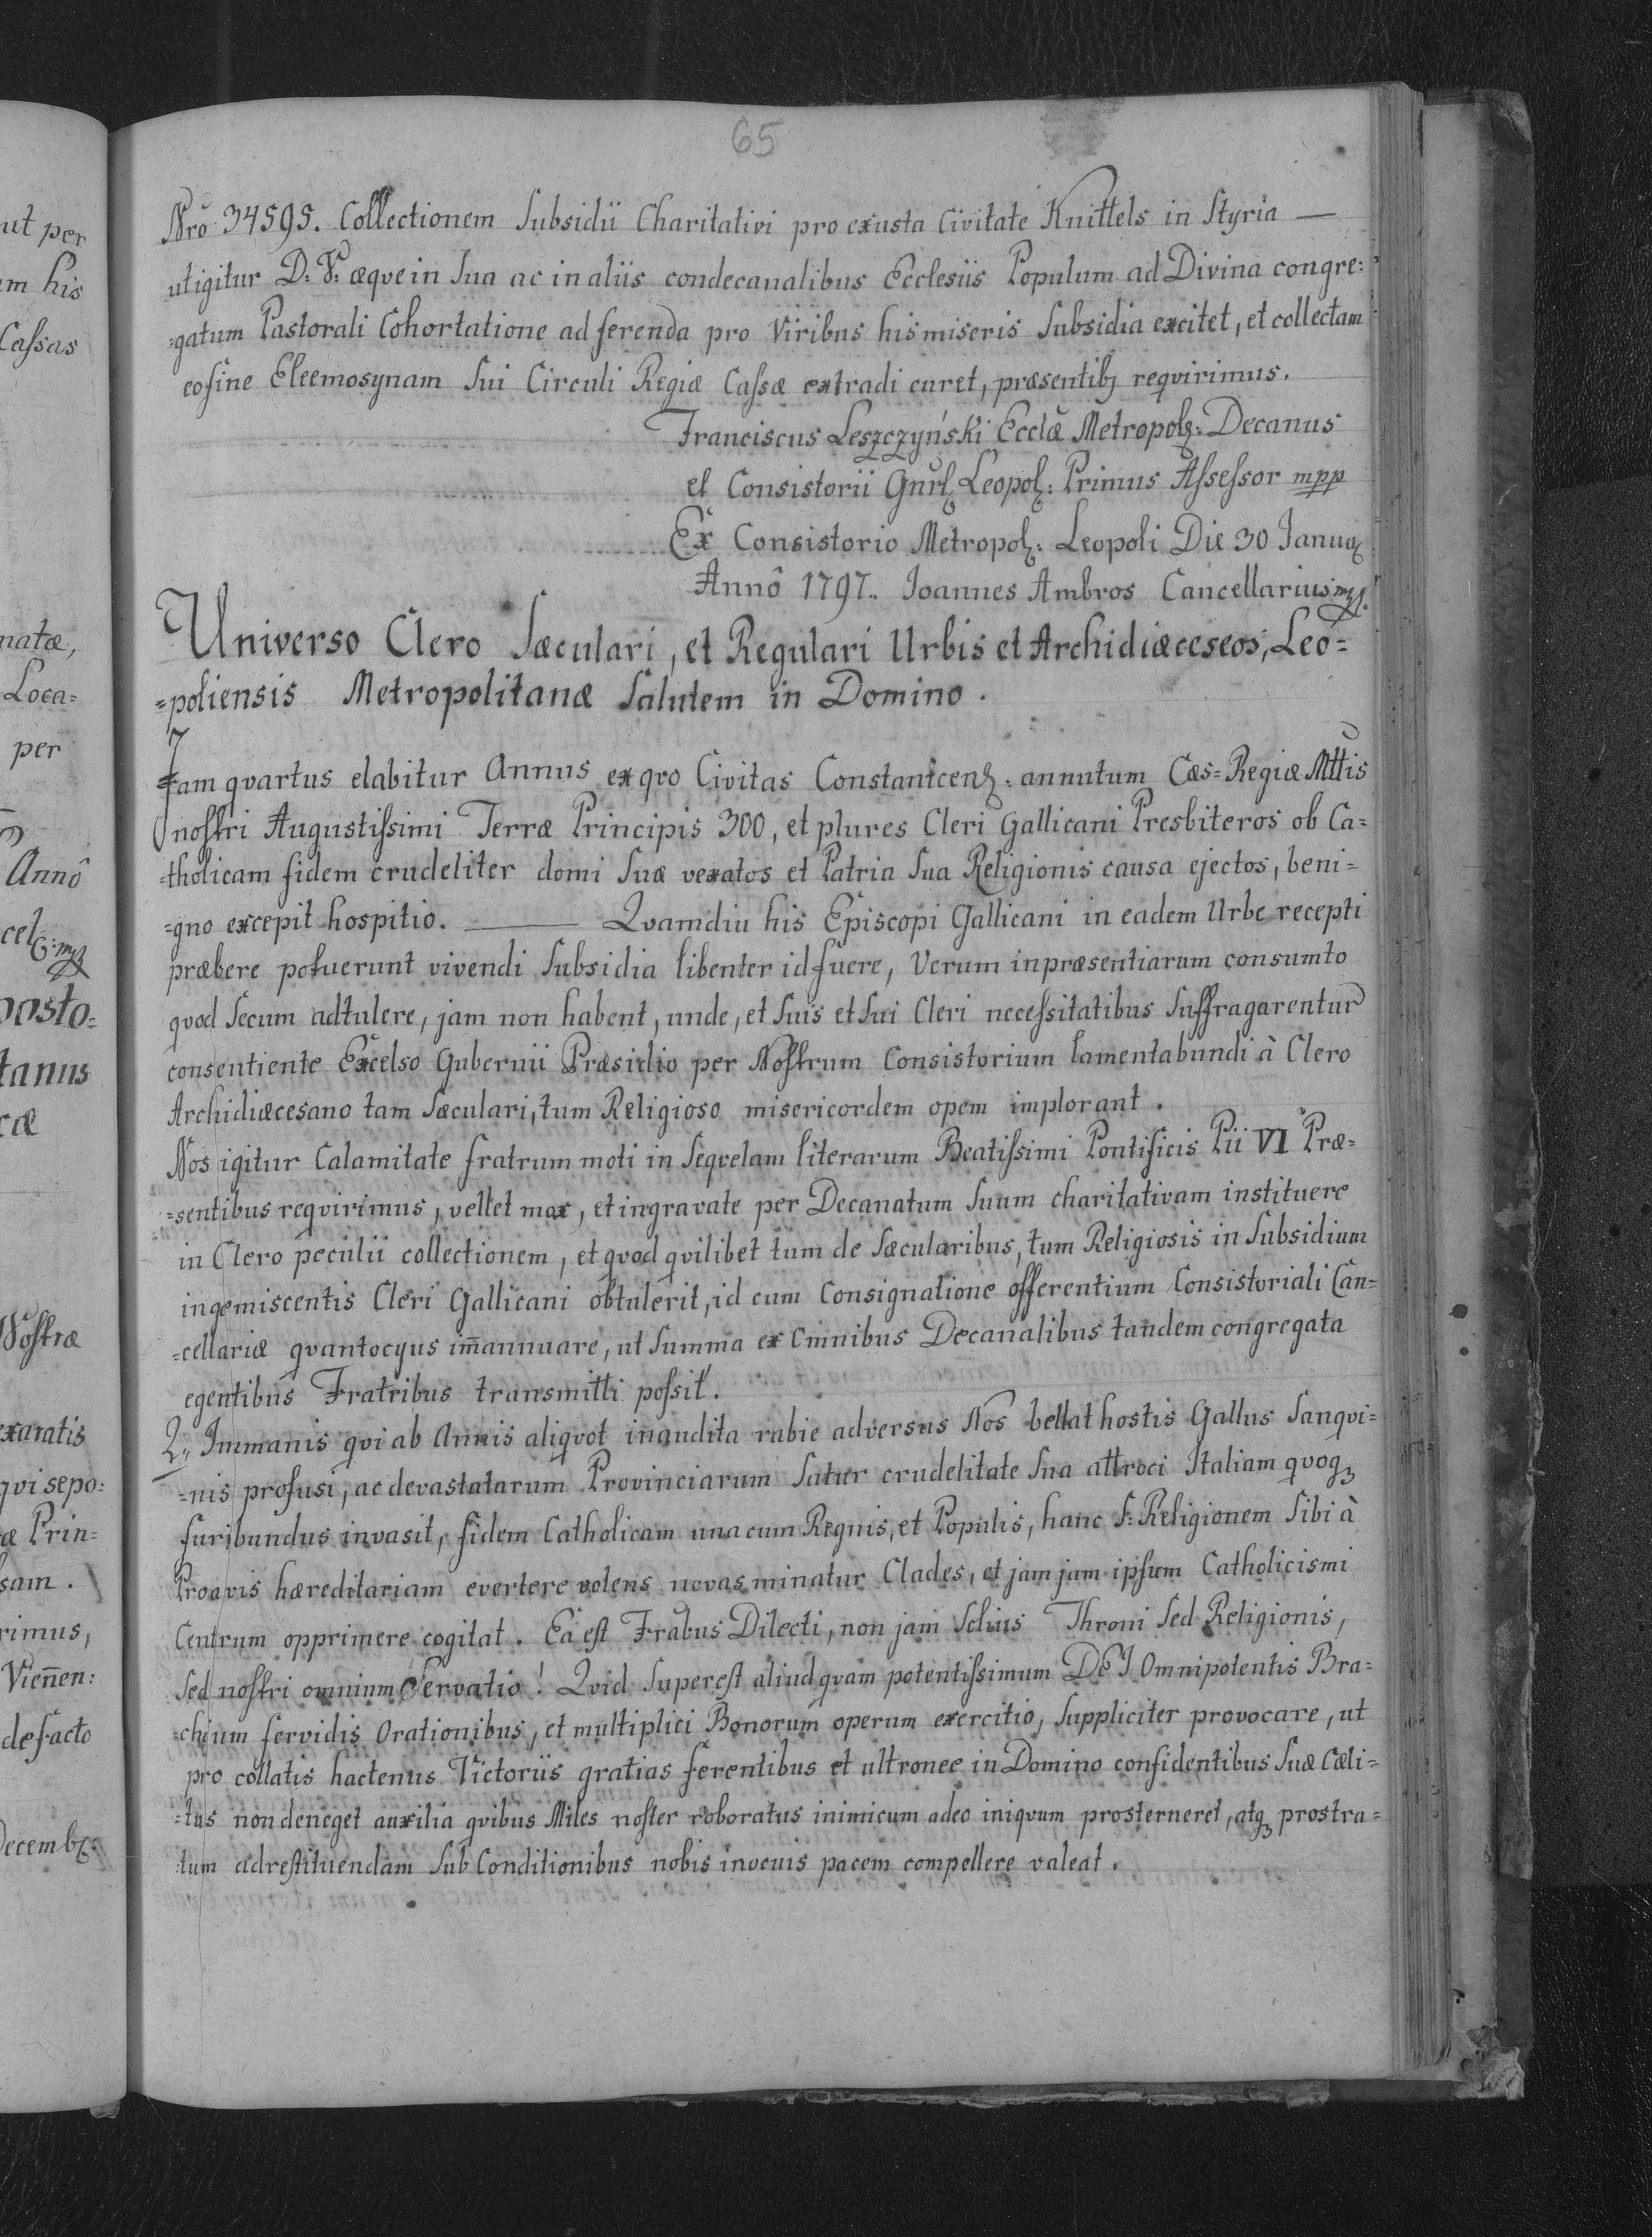 65
Nrõ 34595. Collectionem Subsidii Charitativi pro exusta Civitate Knittels in Styria —
utigitur D: V: æque in Sua ac in aliis condecanalibus Ecclesiis Populum ad Divina congre:
=gatum Pastorali Cohortatione ad ferenda pro Viribus his miseris Subsidia excitet, et collectam
eofine Eleemosynam Sui Circuli Regiæ Cassæ extradi curet, præsentibꝫ reqvirimus.
Franciscus Leszczyński Ecclæ Metropolꝫ: Decanus
et Consistorii Gnrlꝫ Leopolꝫ: Primus Assessor mpp
Ex Consistorio Metropolꝫ: Leopoli Die 30 Januaꝫ
Annô 1797.. Joannes Ambros Cancellarius mp.
Universo Clero Sæculari, et Regulari Urbis et Archidiæceseos, Leo=
=poliensis Metropolitanæ Salutem in Domino.
Jam qvartus elabitur Annus ex qvo Civitas Constantcenꝫ: annutum Cæs=Regiæ Mttis
nostri Augustissimi Terræ Principis 300, et plures Cleri Gallicani Presbiteros ob Ca=
=tholicam fidem crudeliter domi Suæ vexatos et Patria Sua Religionis causa ejectos, beni=
=gno excepit hospitio. —— Qvamdiu his Episcopi Gallicani in eadem Urbe recepti
præbere potuerunt vivendi Subsidia libenter id fuere, Verum inpræsentiarum consumto
qvod Secum adtulere, jam non habent, unde, et Suis et Sui Cleri necessitatibus Suffragarentur
consentiente Excelso Gubernii Præsidio per Nostrum Consistorium lamentabundi à Clero
Archidiæcesano tam Sæculari, tum Religioso misericordem opem implorant.
Nos igitur Calamitate fratrum moti in Seqvelam literarum Beatissimi Pontificis Pii VI Præ=
=sentibus reqvirimus, vellet mox, et ingravate per Decanatum Suum charitativam instituere
in Clero peculii collectionem, et qvod qvilibet tum de Sæcularibus, tum Religiosis in Subsidium
ingemiscentis Cleri Gallicani obtulerit, id cum Consignatione offerentium Consistoriali Can=
=cellariæ qvantocyus im̄annuare, ut Summa ex Omnibus Decanalibus tandem congregata
egentibus Fratribus transmitti possit.
2. Immanis qvi ab Annis aliqvot inaudita rabie adversus Nos bellat hostis Gallus Sanqvi=
=nis profusi, ac devastatarum Provinciarum Satur crudelitate Sua attroci Italiam qvoqꝫ
furibundus invasit, fidem Catholicam una cum Regnis, et Populis, hanc S: Religionem Sibi à
Proavis hæreditariam evertere volens novas minatur Clades, et jam jam ipsum Catholicismi
Centrum opprimere cogitat. Ea est Frabus Dilecti, non jam Solius Throni Sed Religionis,
Sed nostri omnium Servatio! Qvid Superest aliud qvam potentissimum DEI Omnipotentis Bra=
=chium fervidis Orationibus, et multiplici Bonorum operum exercitio, Suppliciter provocare, ut
pro collatis hactenus Victoriis gratias ferentibus et ultronee in Domino confidentibus Suæ Cæli=
=tus non deneget auxilia qvibus Miles noster roboratus inimicum adeo iniqvum prosterneret, atqꝫ prostra=
tum ad restituendam Sub Conditionibus nobis inocuis pacem compellere valeat.